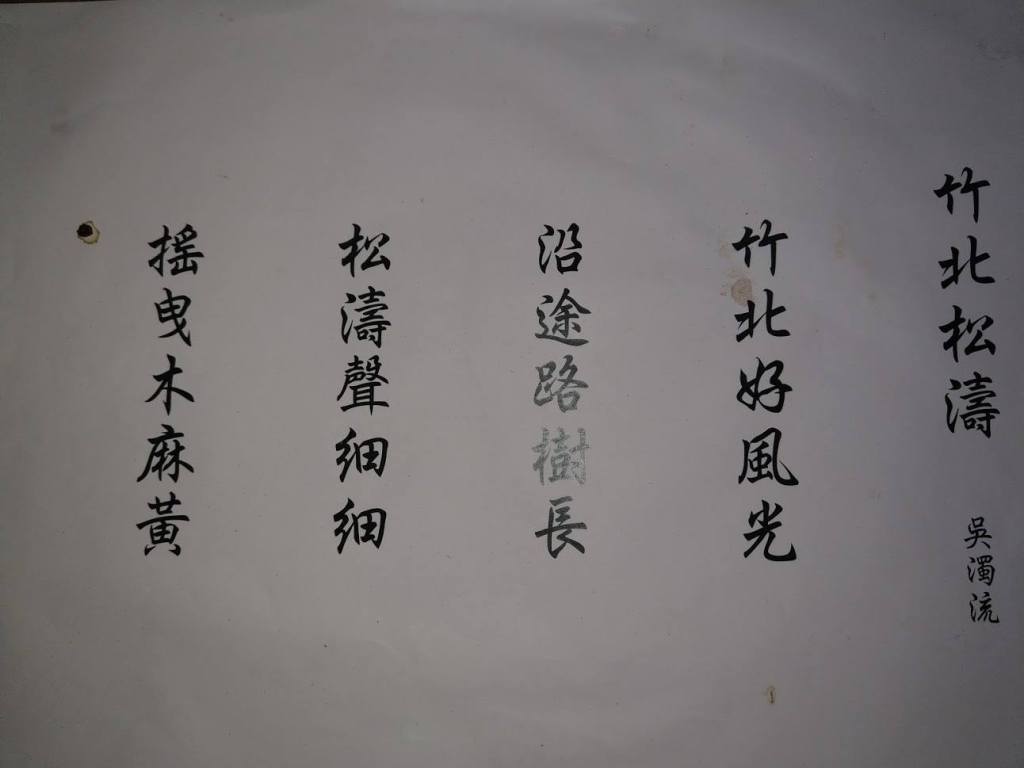 竹北松濤 吳濁流
竹北好風光
沿途路樹長
松濤聲細細
搖曳木麻黃